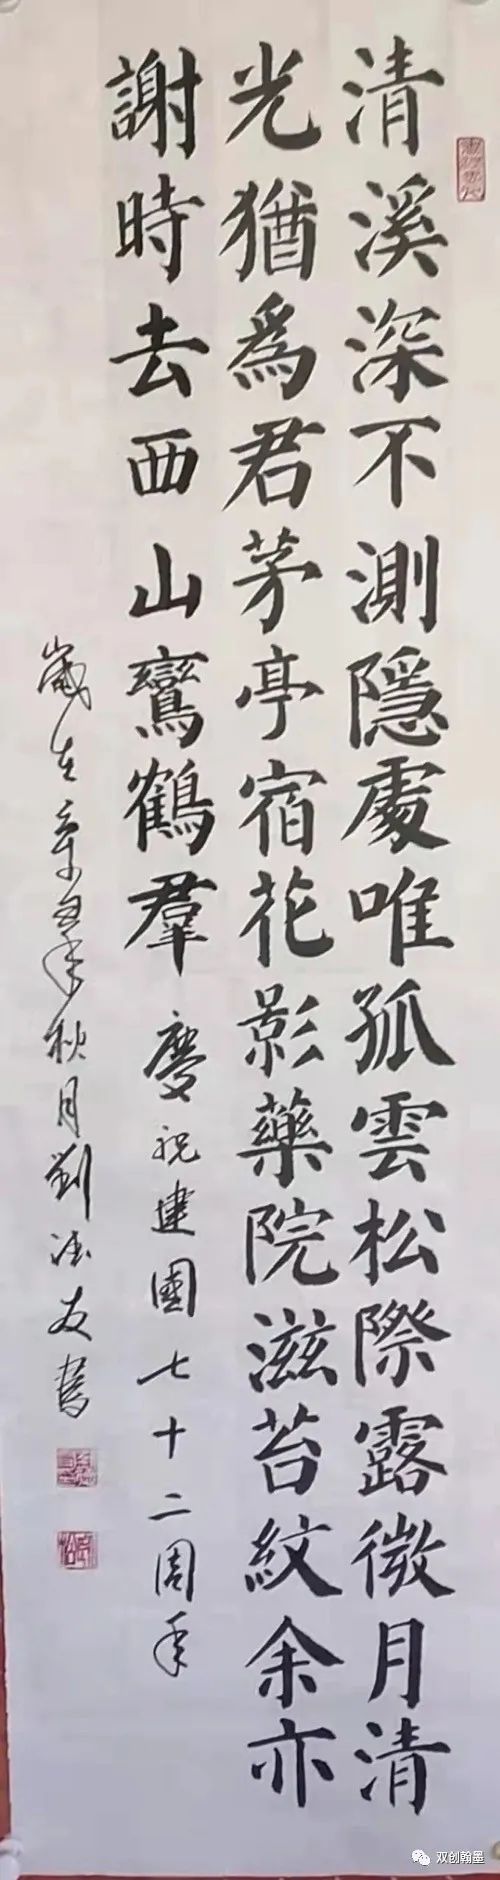 清溪深不測隱處唯孤雲松際露微月清
光猶爲君茅亭宿花影藥院滋苔紋余亦
謝時去西山鸞鶴羣
慶祝建國七十二周年
歲在辛丑年秋月劉德友書
双创翰墨